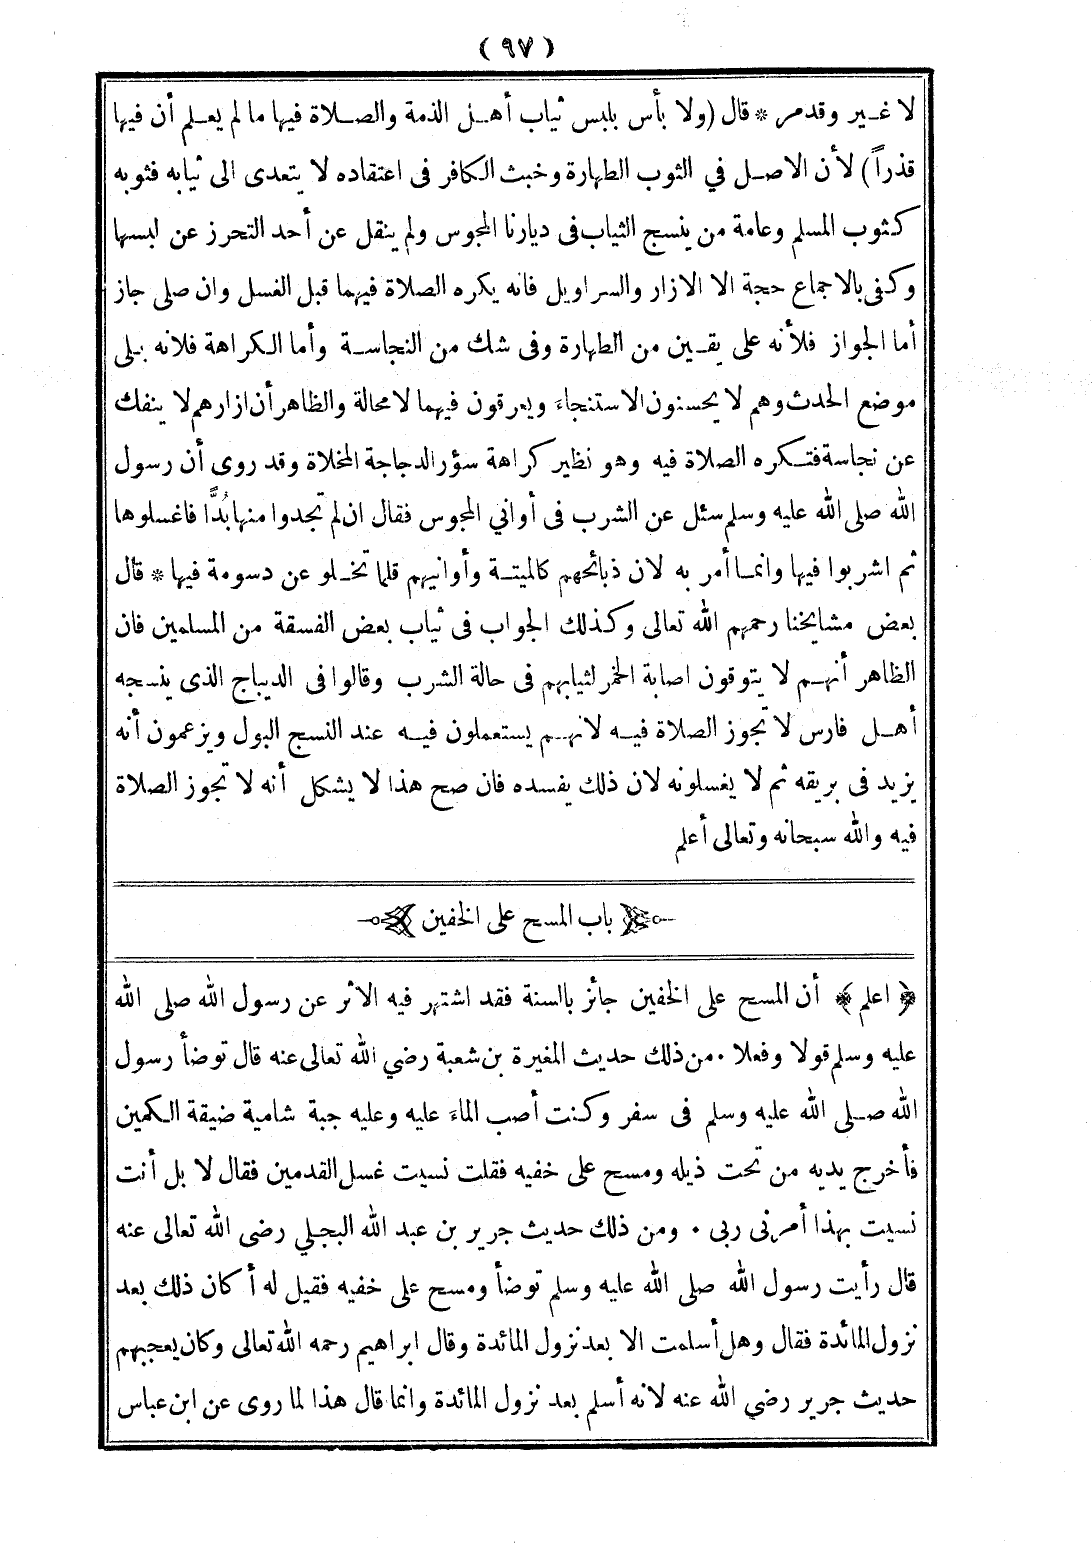 ( ٩٧ )
لا غير وقدمر * قال (ولا بأس بلبس ثياب أهل الذمة والصلاة فيها ما لم يعلم أن فيها
قذراً) لأن الاصل في الثوب الطهارة وخبث الكافر فى اعتقاده لا يتعدى الى ثيابه فثوبه
كثوب المسلم وعامة من ينسج الثياب فى ديارنا المجوس ولم ينقل عن أحد التحرز عن لبسها
وكفى بالاجماع حجة الا الازار والسراويل فانه يكره الصلاة فيهما قبل الغسل وان صلى جاز
أما الجواز فلأنه على يقين من الطهارة وفى شك من النجاسة وأما الكراهة فلانه يلى
موضع الحدث وهم لا يحسنون الاستنجاء ويعرقون فيهما لا محالة والظاهر أن ازارهم لا ينفك
عن نجاسة فتكره الصلاة فيه وهو نظير كراهة سؤر الدجاجة المخلاة وقد روى أن رسول
الله صلى الله عليه وسلم سئل عن الشرب فى أواني المجوس فقال ان لم تجدوا منها بُدًّا فاغسلوها
ثم اشربوا فيها وانما أمر به لان ذبائحهم كالميتة وأوانيهم قلما تخلو عن دسومة فيها * قال
بعض مشايخنا رحمهم الله تعالى وكذلك الجواب فى ثياب بعض الفسقة من المسلمين فان
الظاهر أنهم لا يتوقون اصابة الخمر لثيابهم فى حالة الشرب وقالوا فى الديباج الذى ينسجه
أهل فارس لا تجوز الصلاة فيه لانهم يستعملون فيه عند النسج البول ويزعمون أنه
يزيد فى بريقه ثم لا يغسلونه لان ذلك يفسده فان صح هذا لا يشكل أنه لا تجوز الصلاة
فيه والله سبحانه وتعالى أعلم
باب المسح على الخفين
﴿ اعلم ﴾ أن المسح على الخفين جائز بالسنة فقد اشتهر فيه الاثر عن رسول الله صلى الله
عليه وسلم قولا وفعلا . من ذلك حديث المغيرة بن شعبة رضي الله تعالى عنه قال توضأ رسول
الله صلى الله عليه وسلم فى سفر وكنت أصب الماء عليه وعليه جبة شامية ضيقة الكمين
فأخرج يديه من تحت ذيله ومسح على خفيه فقلت نسيت غسل القدمين فقال لا بل أنت
نسيت بهذا أمرنى ربى . ومن ذلك حديث جرير بن عبد الله البجلي رضى الله تعالى عنه
قال رأيت رسول الله صلى الله عليه وسلم توضأ ومسح على خفيه فقيل له أكان ذلك بعد
نزول المائدة فقال وهل أسلمت الا بعد نزول المائدة وقال ابراهيم رحمه الله تعالى وكان يعجبهم
حديث جرير رضي الله عنه لانه أسلم بعد نزول المائدة وانما قال هذا لما روى عن ابن عباس